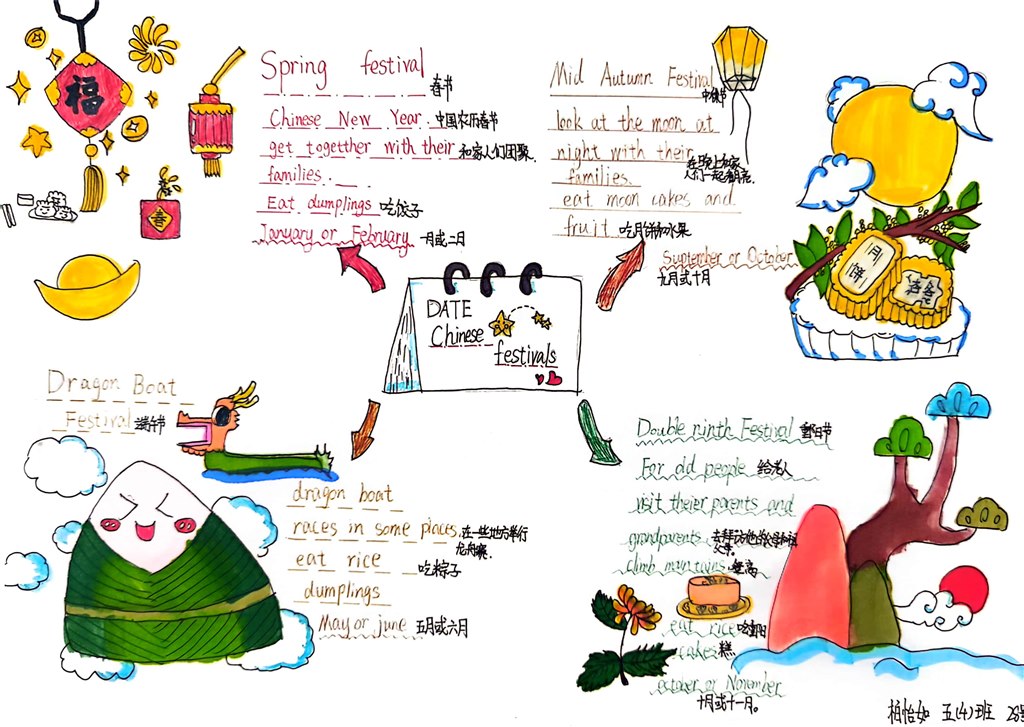 福
春
Spring festival 春节
Chinese New Year. 中国农历春节
get togetther with their 和家人们团聚.
families.
Eat dumplings 吃饺子
January or February 一月或二月
Mid Autumn Festival
中秋节
look at the moon at
night with their
families.
eat moon cakes and
fruit 吃月饼和水果
September or October
九月或十月
月饼
DATE
Chinese
festivals
Dragon Boat
Festival 端午节
dragon boat
races in some places. 在一些地方举行
龙舟赛.
eat rice 吃粽子
dumplings
May or june 五月或六月
Double ninth Festival 重阳节
For old people 给老人
visit theier parents and
grandparents
climb muntains.
eat rice 吃重阳
cakes 糕
october or November
十月或十一月。
五(4)班